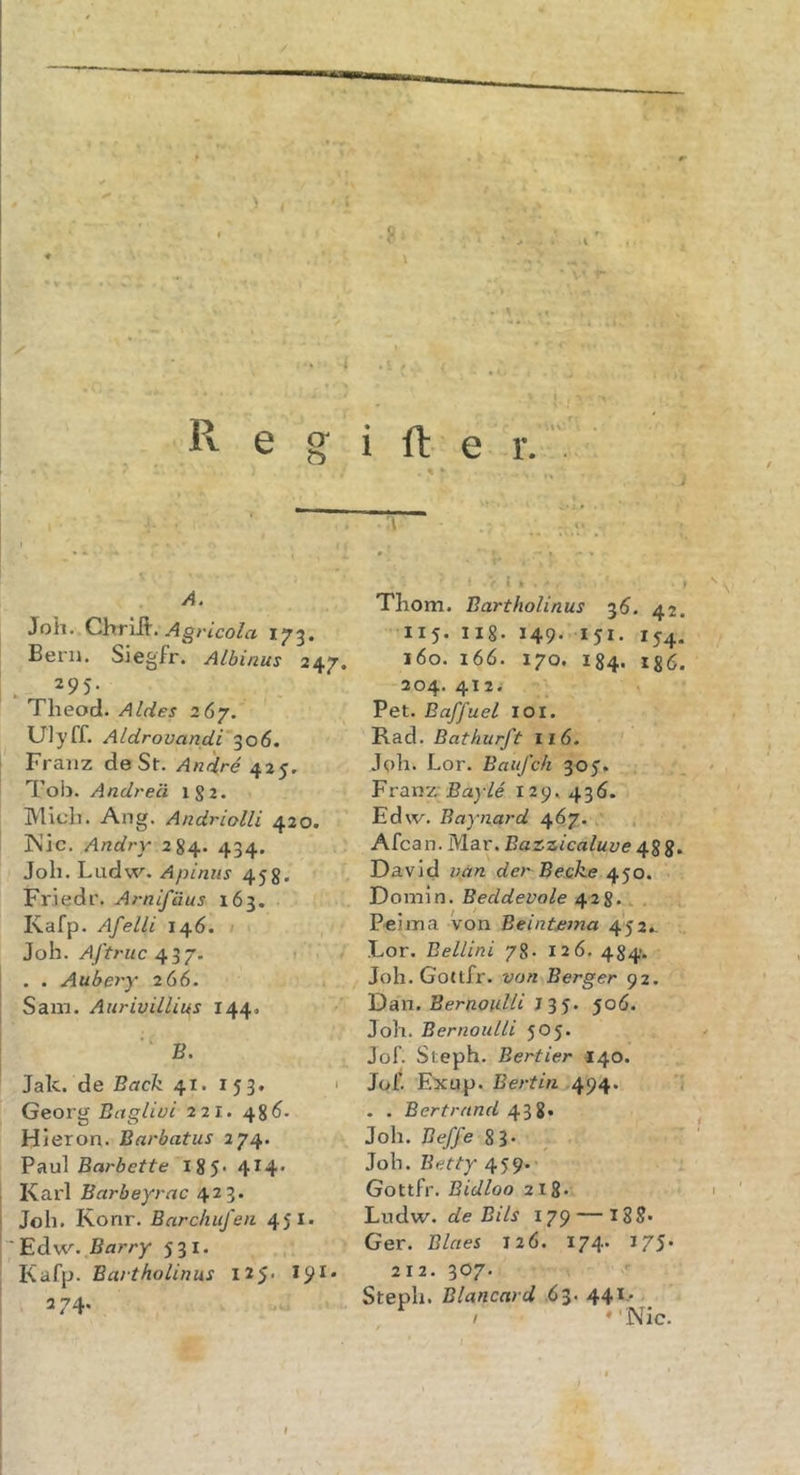 Regiſter.
A.
Joh. Chriſt. Agricola 173.
Bern. Siegfr. Albinus 247.
295.
Theod. Aldes 267.
Ulyſſ. Aldrovandi 306.
Franz de St. André 425.
Tob. Andreä 182.
Mich. Ang. Andriolli 420.
Nic. Andry 284. 434.
Joh. Ludw. Apinus 458.
Friedr. Arniſäus 163.
Kaſp. Aſelli 146.
Joh. Aſtruc 437.
. . Aubery 266.
Sam. Aurivillius 144.
B.
Jak. de Back 41. 153.
Georg Baglivi 221. 486.
Hieron. Barbatus 274.
Paul Barbette 185. 414.
Karl Barbeyrac 423.
Joh. Konr. Barchuſen 451.
Edw. Barry 531.
Kaſp. Bartholinus 125. 191.
274.
Thom. Bartholinus 36. 42.
115. 118. 149. 151. 154.
160. 166. 170. 184. 186.
204. 412.
Pet. Baſſuel 101.
Rad. Bathurſt 116.
Joh. Lor. Bauſch 305.
Franz Baylé 129. 436.
Edw. Baynard 467.
Aſcan. Mar. Bazzicaluve 488.
David van der Becke 450.
Domin. Beddevole 428.
Peima von Beintema 452.
Lor. Bellini 78. 126. 484.
Joh. Gottfr. von Berger 92.
Dan. Bernoulli 135. 506.
Joh. Bernoulli 505.
Joſ. Steph. Bertier 140.
Joſ. Exup. Bertin 494.
. . Bertrand 438.
Joh. Beſſe 83.
Joh. Betty 459.
Gottfr. Bidloo 218.
Ludw. de Bils 179 — 188.
Ger. Blaes 126. 174. 175.
212. 307.
Steph. Blancard 63. 441.
Nic.